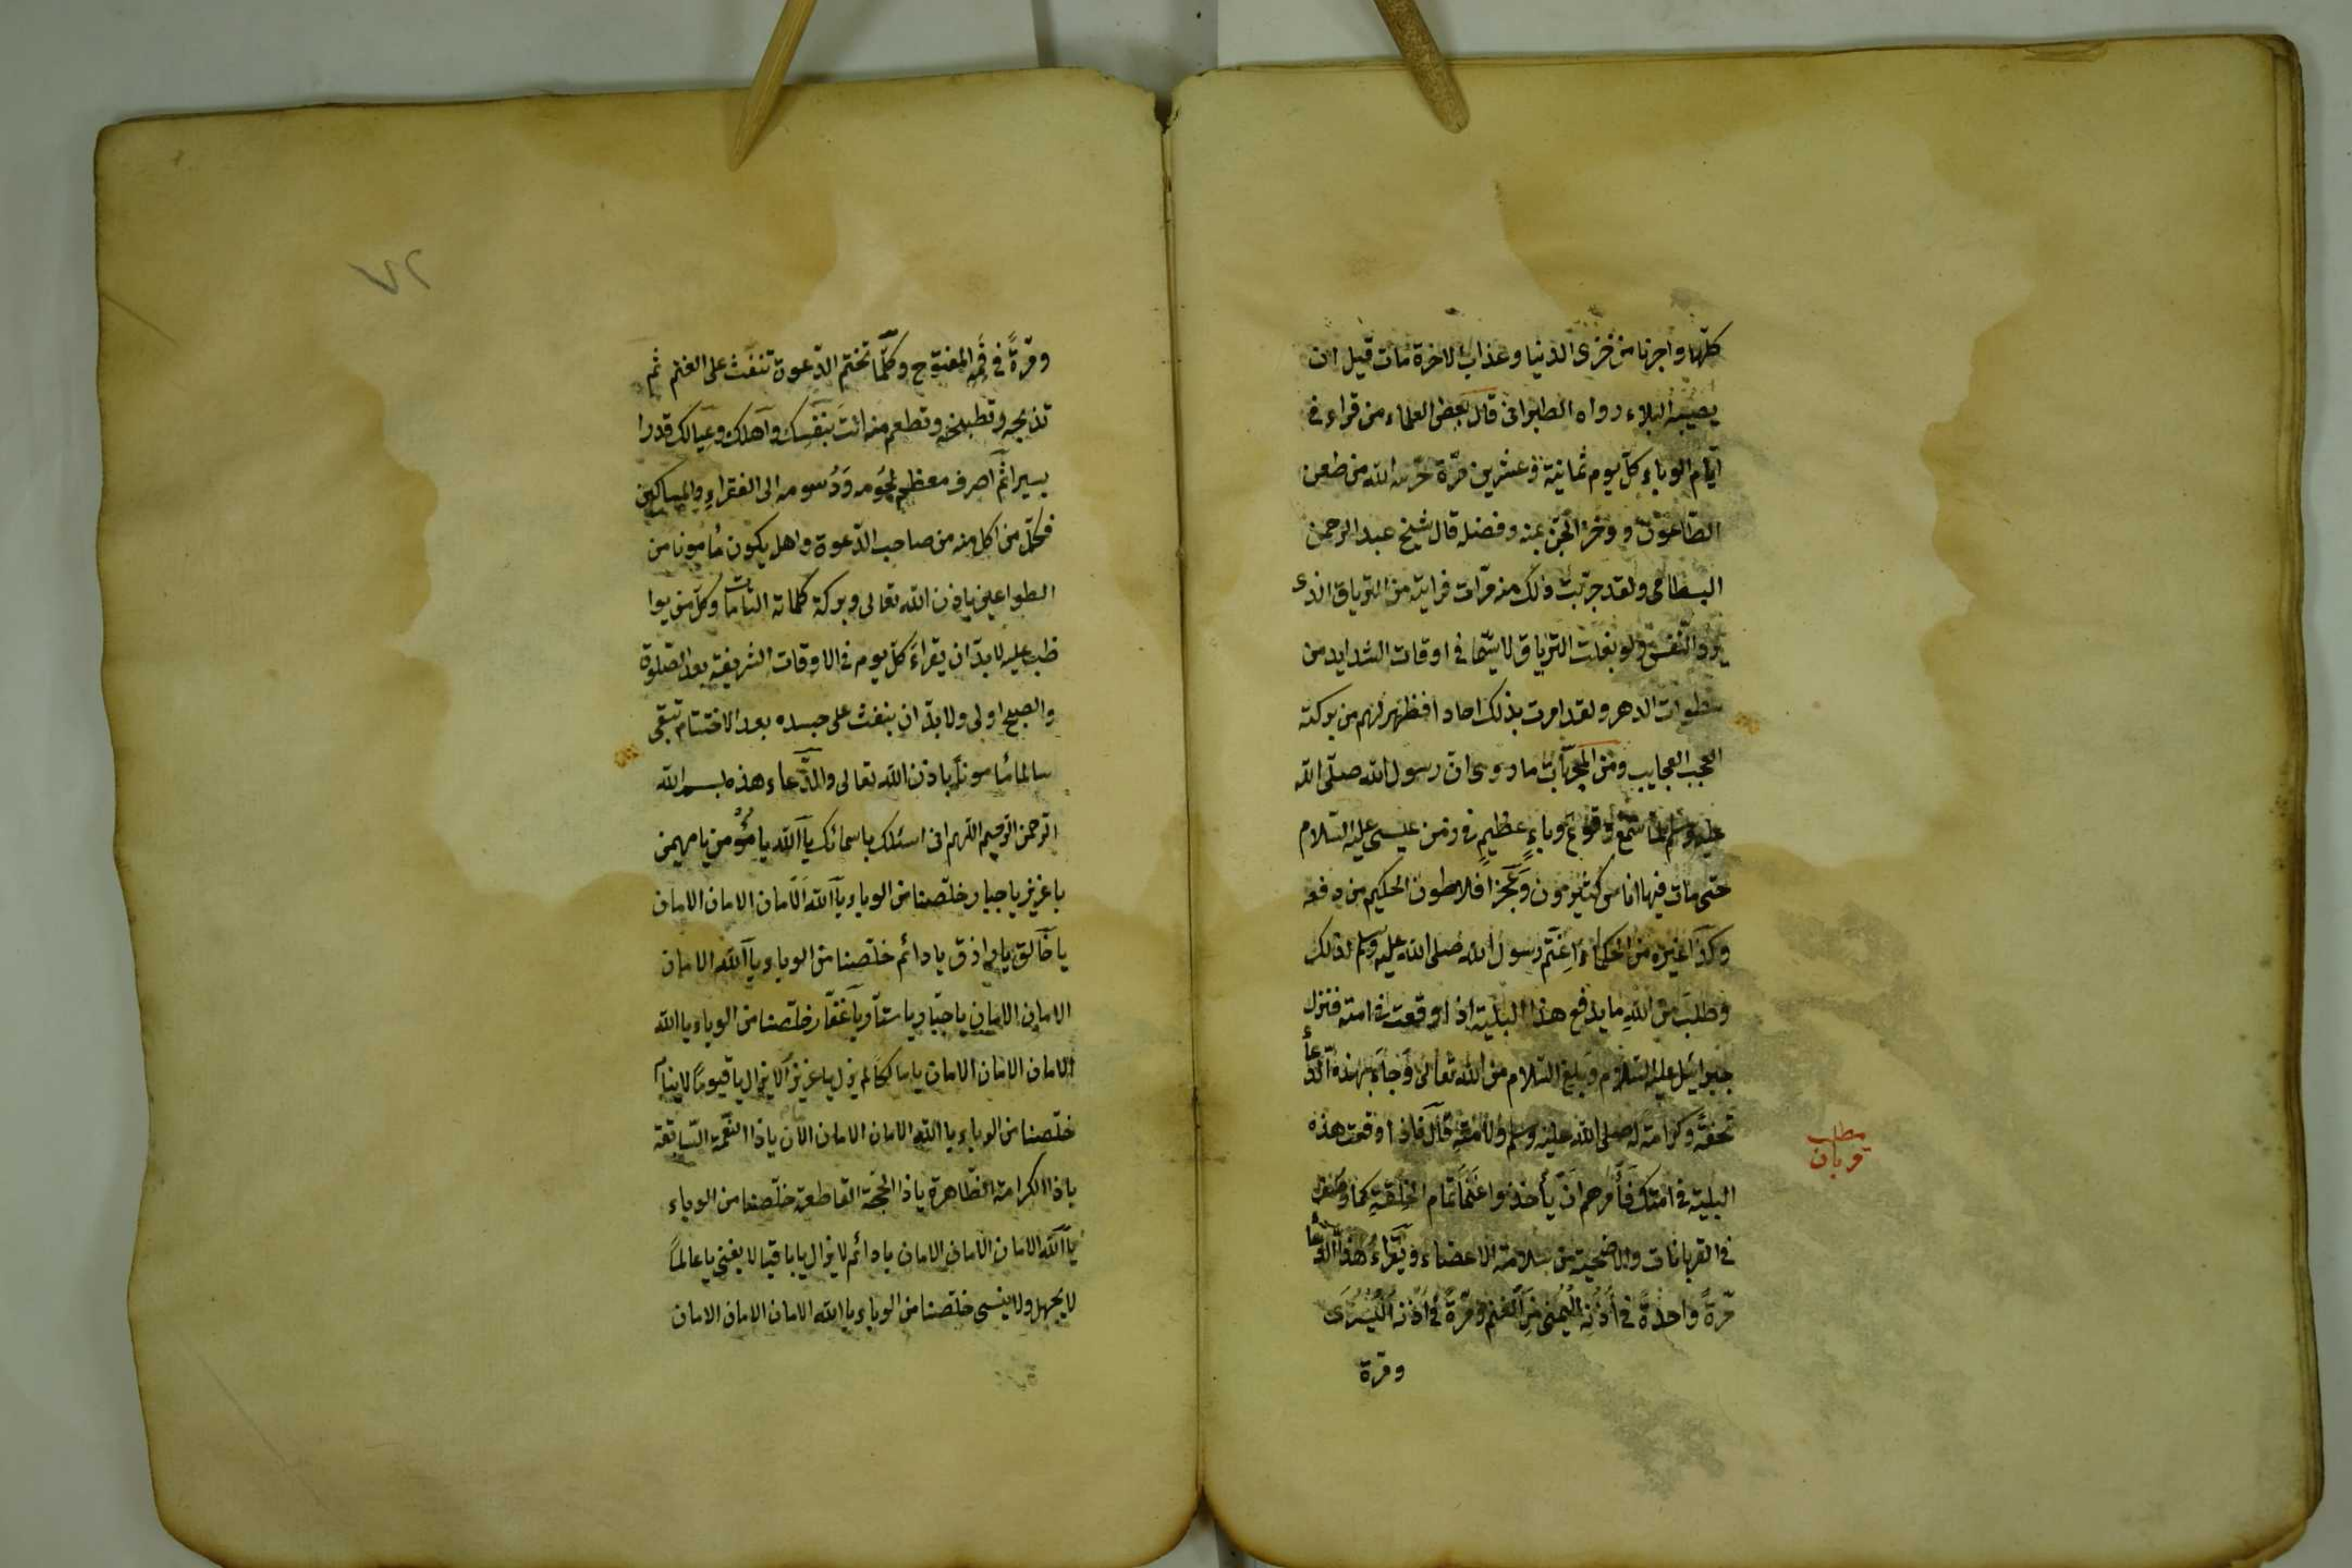 كلها واجرنا من خزى الدنيا وعذاب الاخرة مات قبل ان
يصيبه البلاء رواه الطبرانى قال بعض العلماء من قراء فى
ايام الوباء كل يوم ثمانية وعشرين مرّة حرسه الله من طعن
الطاعون ووخز الجن بمنه وفضله قال شيخ عبد الرحمن
البسطامى ولقد جربت ذلك منه مرّات فرايته من الترياق الذى
النفس ولو بغلت الترياق لاسيّما فى اوقات الشدايد من
سطوات الدهر ولقد امرت بذلك احادا فظهر لهم من بركته
العجب العجايب ومن المجربات ما روى ان رسول الله صلى الله
عليه وسلم لما سمع وقوع وباء عظيم فى زمن عيسى عليه السلام
حتى مات فيها اناس كثيرون وعجز افلاطون الحكيم من دفعه
وكذا غيره من الحكماء اغتم رسول الله صلى الله عليه وسلم لذلك
وطلب من الله ما يدفع هذا البلية اذا وقعت فى امته فنزل
جبرائيل عليه السلام وبلغ السلام من الله تعالى وجاء بهذه الدعاء
تحفة وكرامة له صلى الله عليه وسلم ولامته قال فاذا وقعت هذه
البلية فى امتك فأمرهم ان يأخذوا غنما تمام الخلقة كما
فى القربانات والاضحية من سلامة الاعضاء ويقراء هذا الدعاء
مرّةً واحدةً فى اذنه اليمنى من الغنم ومرّةً فى اذنه اليسرى
ومرّة
مطلب
قربان
ومرّةً فى فمه المفتوح وكلّما تختم الدّعوة تنفث على الغنم ثم
تذبحه وتطبخه وتطعم منه انت بنفسك واهلك وعيالك قدرا
يسيرا ثم اصرف معظم لحومه ودسومه الى الفقراء والمساكين
فكل من اكل منه من صاحب الدّعوة واهله يكون مأمونا من
الطواعين باذن الله تعالى وبركة كلماته التامات وكل من يوا
ظب عليه لابدّ ان يقراء كل يوم فى الاوقات الشريفة بعد الصلوة
والصبح اولى ولابدّ ان ينفث على جسده بعد الاختتام تبقى
سالما مأمونا باذن الله تعالى والدّعاء هذه بسم الله
الرحمن الرحيم اللهم انى اسئلك باسمائك يا الله يا مؤمن يا مهيمن
يا عزيز يا جبار خلصنا من الوباء يا الله الامان الامان الامان
يا خالق يا رازق يا دائم خلّصنا من الوباء يا الله الامان
الامان الامان يا جبّار يا ستّار يا غفّار خلّصنا من الوباء يا الله
الامان الامان الامان يا ملكا لم يزل يا عزيزا لا يزال يا قيوما لا ينام
خلّصنا من الوباء يا الله الامان الامان الامان يا ذا النعمة السابقة
يا ذا الكرامة الظاهرة يا ذا الحجة القاطعة خلّصنا من الوباء
يا الله الامان الامان الامان يا دائم لا يزال يا باقيا لا يفنى يا عالما
لا يجهل ولا ينسى خلّصنا من الوباء يا الله الامان الامان الامان